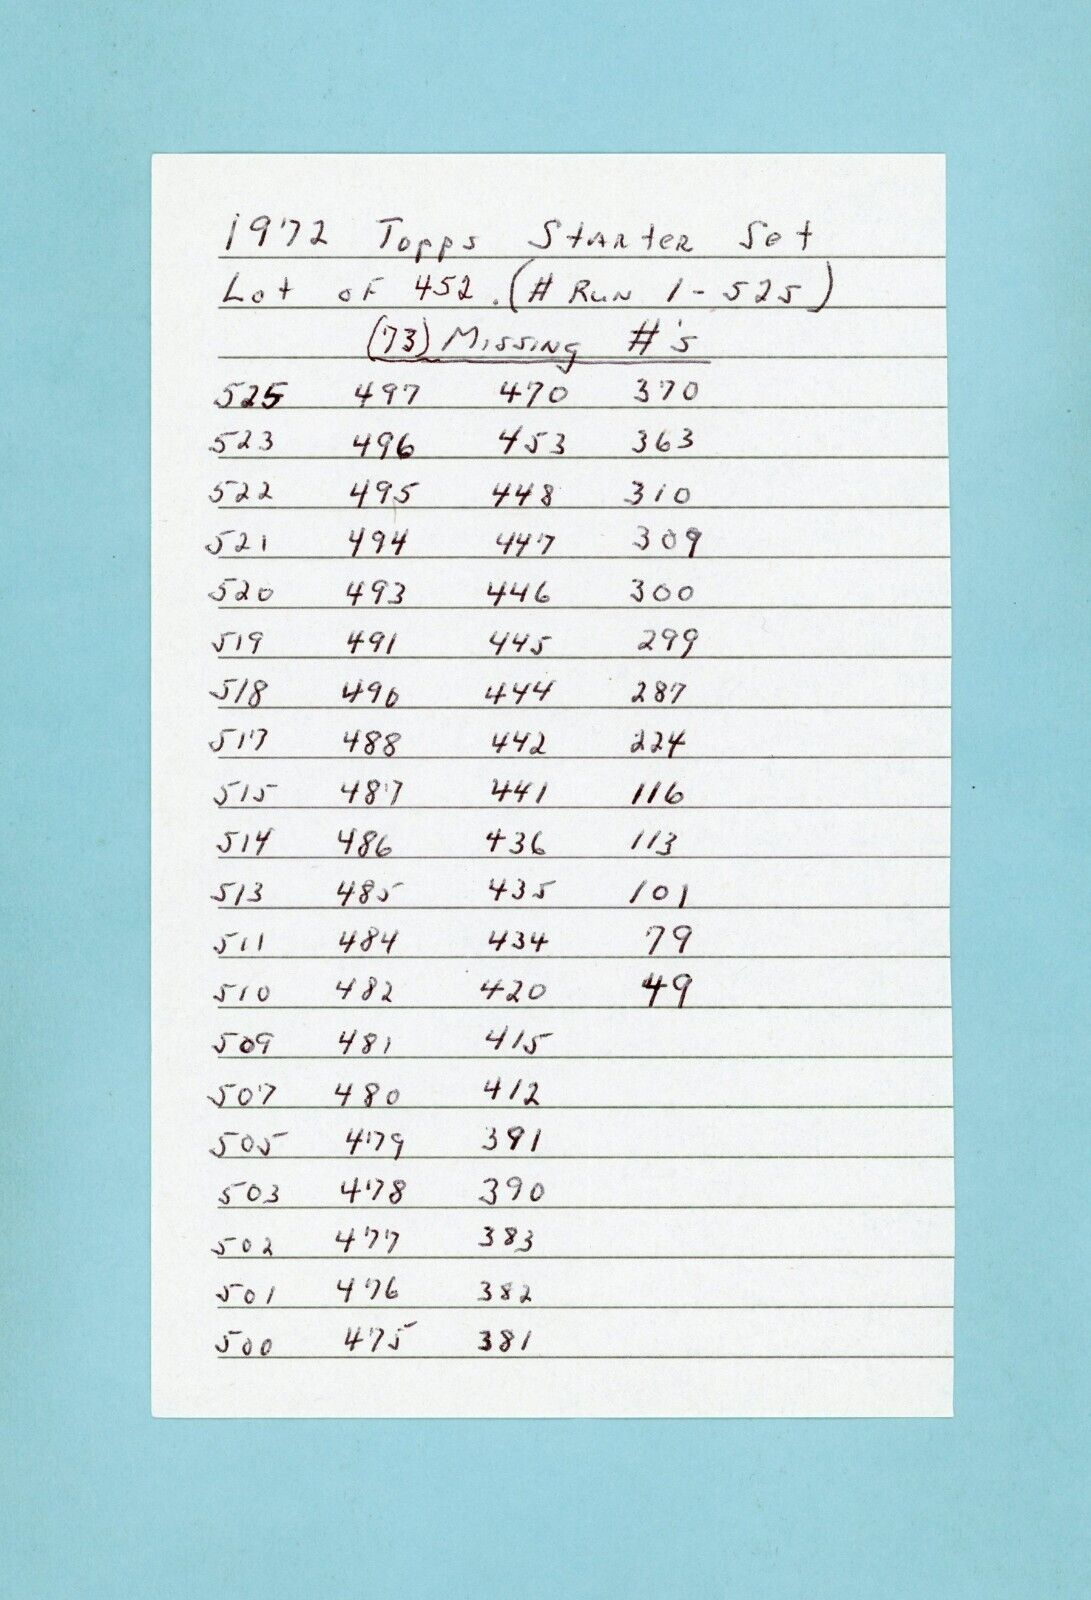 1972 Topps Starter Set
Lot of 452. (# Run 1-525)
(73) Missing #'s
525 497 470 370
523 496 453 363
522 495 448 310
521 494 447 309
520 493 446 300
519 491 445 299
518 490 444 287
517 488 442 224
515 487 441 116
514 486 436 113
513 485 435 101
511 484 434 79
510 482 420 49
509 481 415
507 480 412
505 479 391
503 478 390
502 477 383
501 476 382
500 475 381